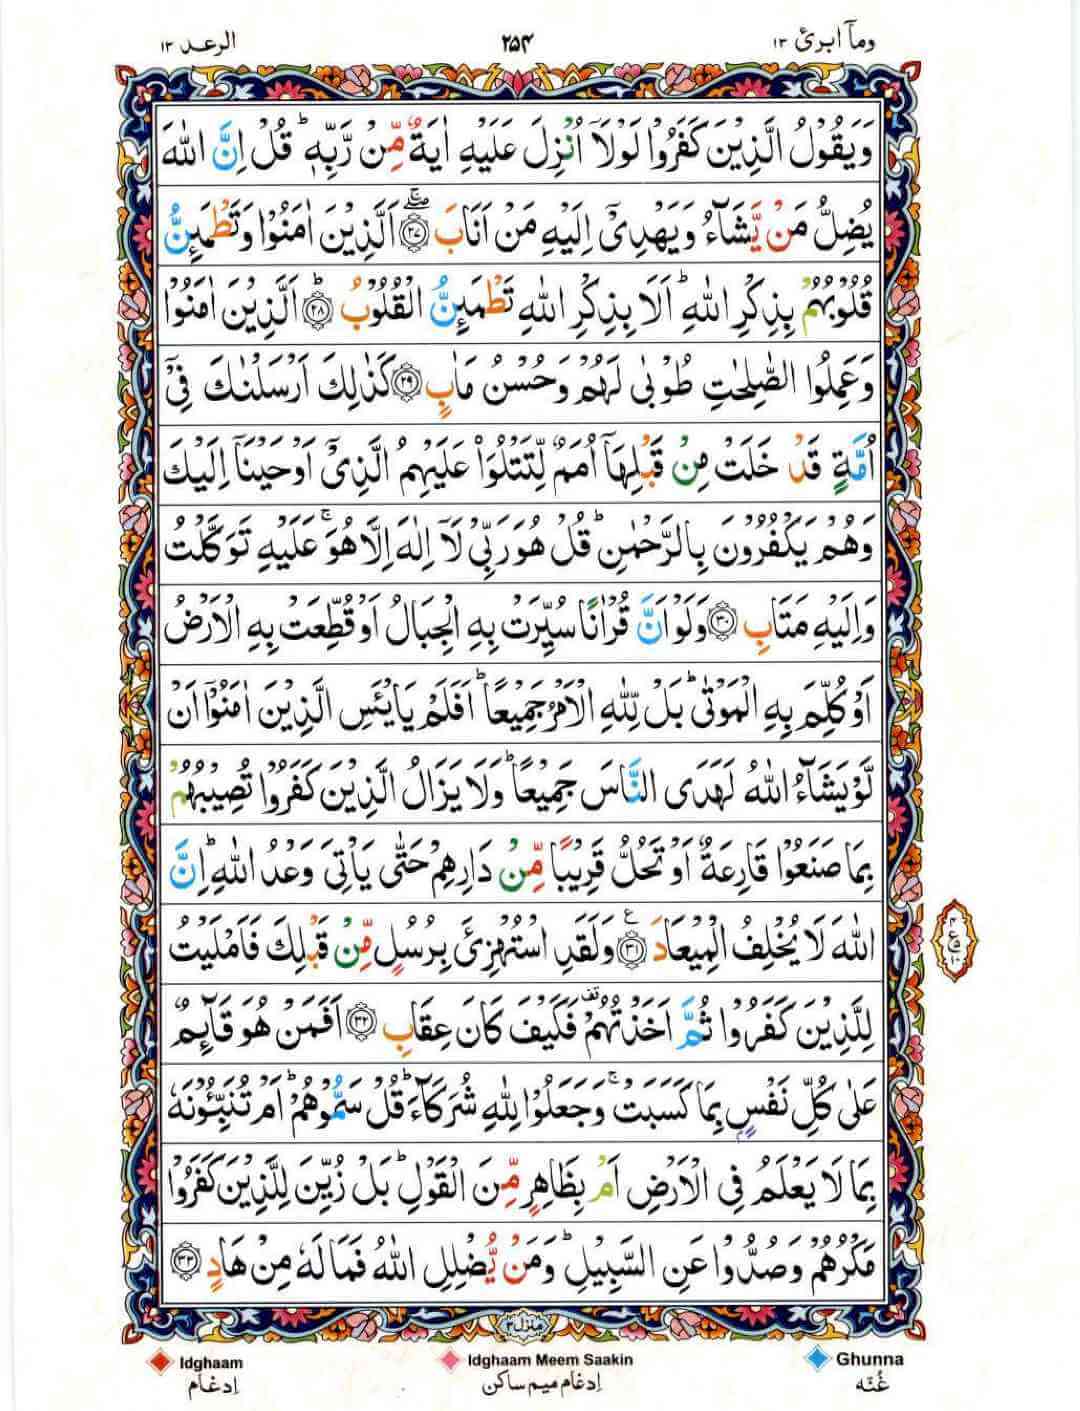 ومآ ابرئ ۱۳ ۲۵۴ الرعد ۱۳
وَيَقُوْلُ الَّذِيْنَ كَفَرُوْا لَوْلَاۤ اُنْزِلَ عَلَيْهِ اٰيَةٌ مِّنْ رَّبِّهٖ ؕ قُلْ اِنَّ اللّٰهَ
يُضِلُّ مَنْ يَّشَآءُ وَيَهْدِىْۤ اِلَيْهِ مَنْ اَنَابَ ۖۚ ﴿۲۷﴾ اَلَّذِيْنَ اٰمَنُوْا وَتَطْمَئِنُّ
قُلُوْبُهُمْ بِذِكْرِ اللّٰهِ ؕ اَلَا بِذِكْرِ اللّٰهِ تَطْمَئِنُّ الْقُلُوْبُ ؕ ﴿۲۸﴾ اَلَّذِيْنَ اٰمَنُوْا
وَعَمِلُوا الصّٰلِحٰتِ طُوْبٰى لَهُمْ وَحُسْنُ مَاٰبٍ ﴿۲۹﴾ كَذٰلِكَ اَرْسَلْنٰكَ فِىْۤ
اُمَّةٍ قَدْ خَلَتْ مِنْ قَبْلِهَاۤ اُمَمٌ لِّتَتْلُوَا۟ عَلَيْهِمُ الَّذِىْۤ اَوْحَيْنَاۤ اِلَيْكَ
وَهُمْ يَكْفُرُوْنَ بِالرَّحْمٰنِ ؕ قُلْ هُوَ رَبِّىْ لَاۤ اِلٰهَ اِلَّا هُوَ ۚ عَلَيْهِ تَوَكَّلْتُ
وَاِلَيْهِ مَتَابِ ﴿۳۰﴾ وَلَوْ اَنَّ قُرْاٰنًا سُيِّرَتْ بِهِ الْجِبَالُ اَوْ قُطِّعَتْ بِهِ الْاَرْضُ
اَوْ كُلِّمَ بِهِ الْمَوْتٰى ؕ بَلْ لِّلّٰهِ الْاَمْرُ جَمِيْعًا ؕ اَفَلَمْ يَايْـَٔسِ الَّذِيْنَ اٰمَنُوْۤا اَنْ
لَّوْ يَشَآءُ اللّٰهُ لَهَدَى النَّاسَ جَمِيْعًا ؕ وَلَا يَزَالُ الَّذِيْنَ كَفَرُوْا تُصِيْبُهُمْ
بِمَا صَنَعُوْا قَارِعَةٌ اَوْ تَحُلُّ قَرِيْبًا مِّنْ دَارِهِمْ حَتّٰى يَاْتِىَ وَعْدُ اللّٰهِ ؕ اِنَّ
اللّٰهَ لَا يُخْلِفُ الْمِيْعَادَ ﴿۳۱﴾ ع وَلَقَدِ اسْتُهْزِئَ بِرُسُلٍ مِّنْ قَبْلِكَ فَاَمْلَيْتُ
لِلَّذِيْنَ كَفَرُوْا ثُمَّ اَخَذْتُهُمْ ۫ فَكَيْفَ كَانَ عِقَابِ ﴿۳۲﴾ اَفَمَنْ هُوَ قَآئِمٌ
عَلٰى كُلِّ نَفْسٍۢ بِمَا كَسَبَتْ ۚ وَجَعَلُوْا لِلّٰهِ شُرَكَآءَ ؕ قُلْ سَمُّوْهُمْ ؕ اَمْ تُنَبِّـُٔوْنَهٗ
بِمَا لَا يَعْلَمُ فِى الْاَرْضِ اَمْ بِظَاهِرٍ مِّنَ الْقَوْلِ ؕ بَلْ زُيِّنَ لِلَّذِيْنَ كَفَرُوْا
مَكْرُهُمْ وَصُدُّوْا عَنِ السَّبِيْلِ ؕ وَمَنْ يُّضْلِلِ اللّٰهُ فَمَا لَهٗ مِنْ هَادٍ ﴿۳۳﴾
منزل ۳
Idghaam Idghaam Meem Saakin Ghunna
اِدغام اِدغام میم ساکن غُنّه